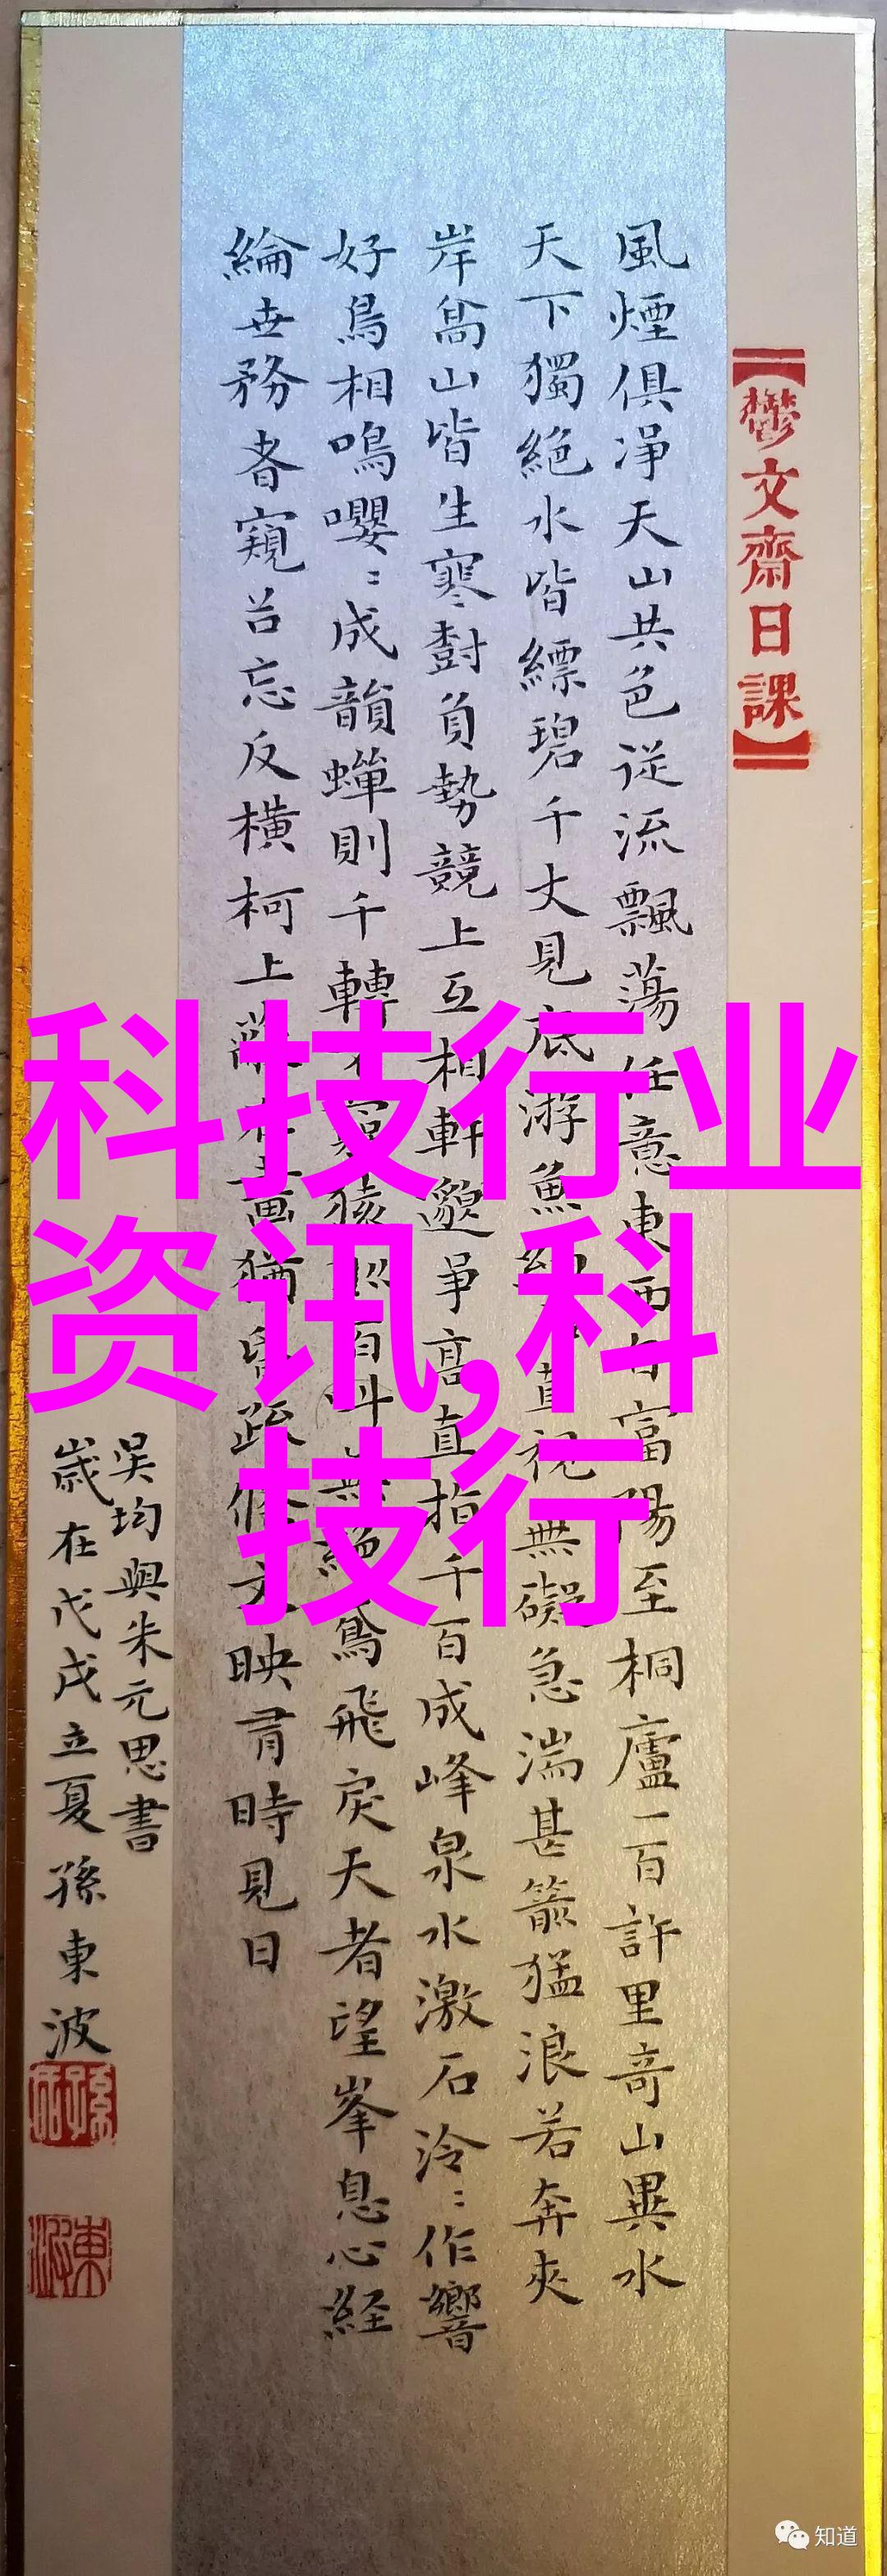 【鬱文齋日課】
風煙俱淨天山共色從流飄蕩任意東西自富陽至桐廬一百許里奇山異水
天下獨絕水皆縹碧千丈見底游魚細直視無礙急湍甚箭猛浪若奔夾
岸高山皆生寒樹負勢競上互相軒邈爭高直指千百成峰泉水激石泠〻作響
好鳥相鳴嚶〻成韻蟬則千轉猿百叫無絕鳶飛戾天者望峯息心経
綸世務者窺谷忘反橫柯上蔽在晝猶昏疏條交映有時見日
吳均與朱元思書
歲在戊戌立夏孫東波
科技行业
资讯,科
技行
知道